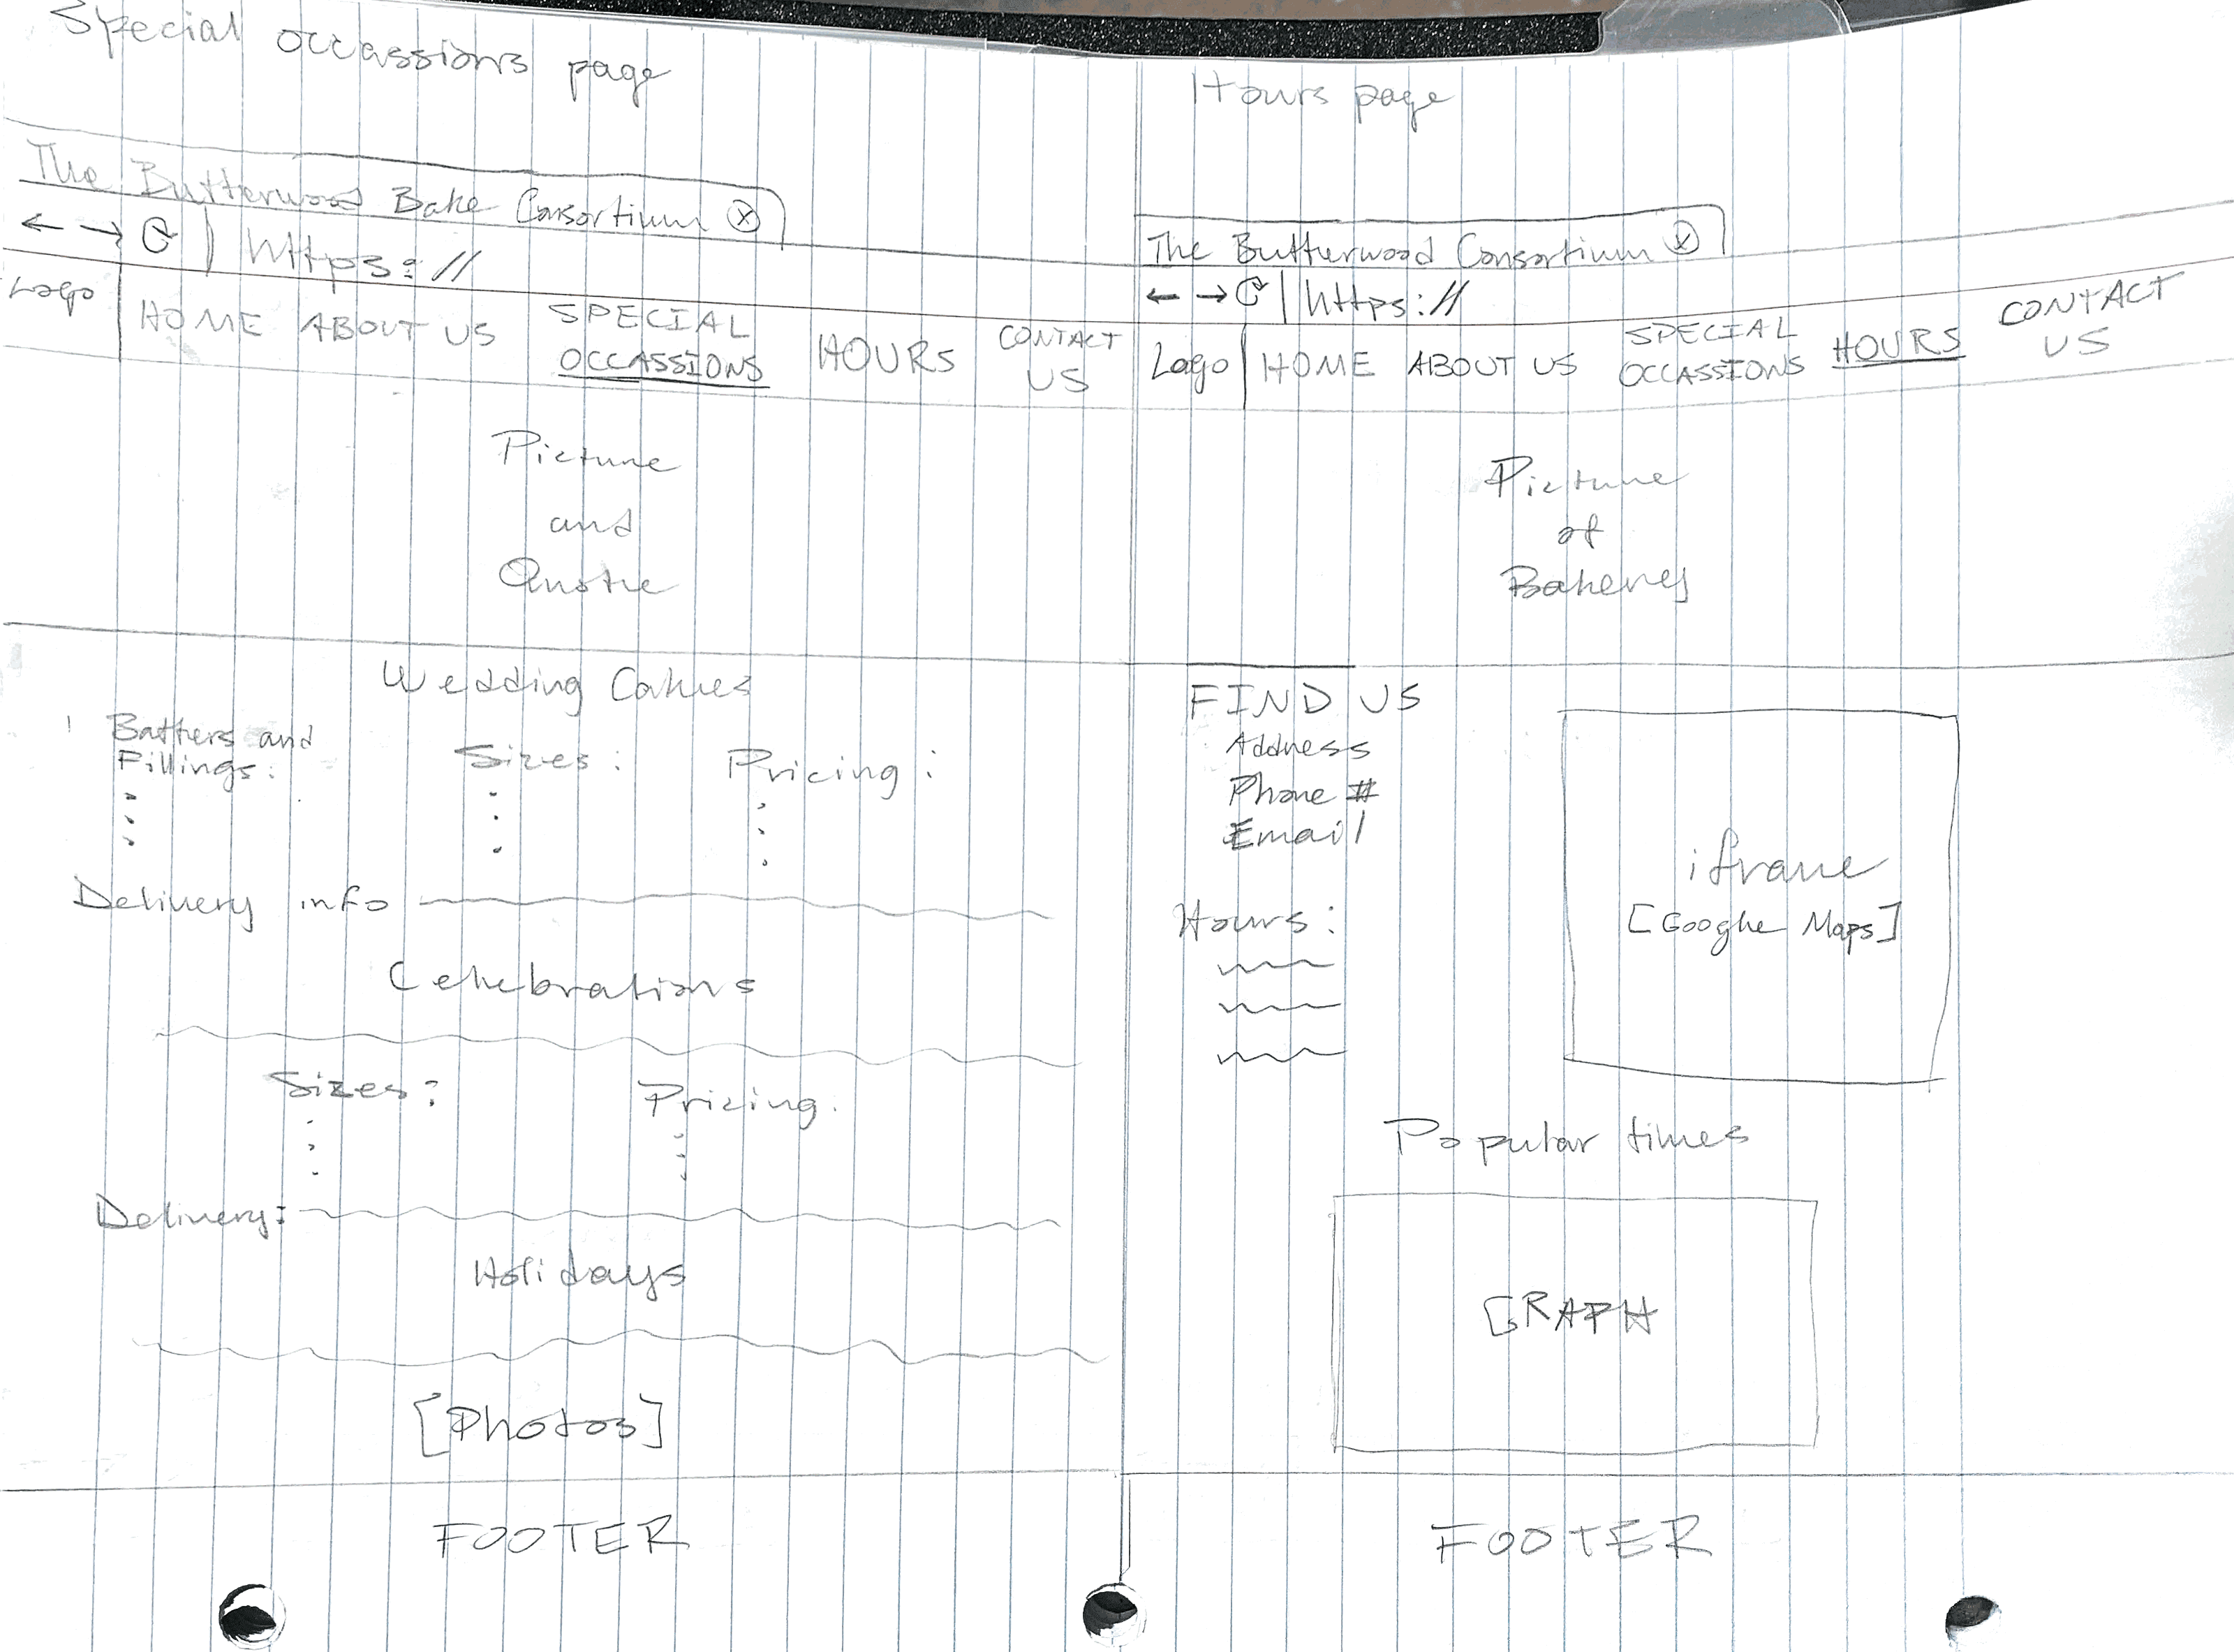 Special occassions page
The Butterwood Bake Consortium ⓧ
← → ⟳ | https://
Logo
HOME ABOUT US SPECIAL OCCASSIONS HOURS CONTACT US
Picture
and
Quote
Wedding Cakes
Batters and
Fillings:
Sizes:
Pricing:
Delivery info
Celebrations
Sizes:
Pricing:
Delivery:
Holidays
[Photos]
FOOTER
Hours page
The Butterwood Consortium ⓧ
← → ⟳ | https://
Logo HOME ABOUT US SPECIAL OCCASSIONS HOURS CONTACT US
Picture
of
Bakery
FIND US
Address
Phone #
Email
Hours:
iframe
[Google Maps]
Popular times
GRAPH
FOOTER